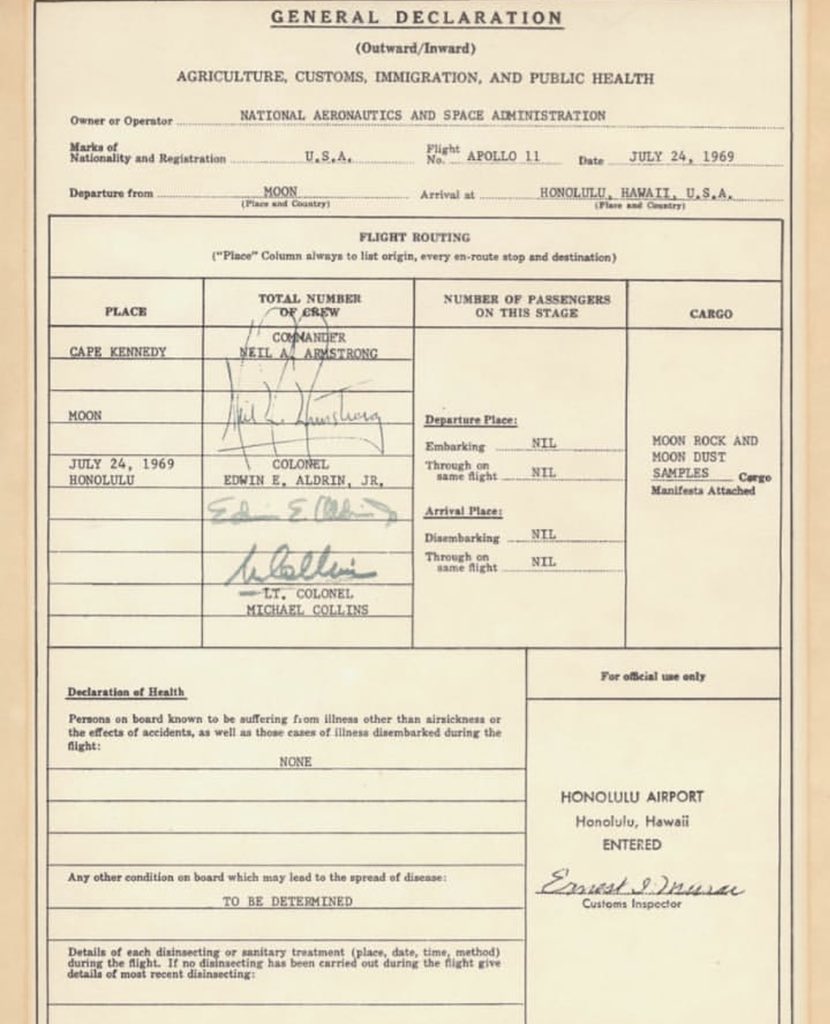 GENERAL DECLARATION
(Outward/Inward)
AGRICULTURE, CUSTOMS, IMMIGRATION, AND PUBLIC HEALTH
Owner or Operator NATIONAL AERONAUTICS AND SPACE ADMINISTRATION
Marks of Nationality and Registration U.S.A. Flight No. APOLLO 11 Date JULY 24, 1969
Departure from MOON Arrival at HONOLULU, HAWAII, U.S.A.
(Place and Country) (Place and Country)
FLIGHT ROUTING
("Place" Column always to list origin, every en-route stop and destination)
PLACE
TOTAL NUMBER
OF CREW
NUMBER OF PASSENGERS
ON THIS STAGE
CARGO
CAPE KENNEDY
MOON
JULY 24, 1969
HONOLULU
COMMANDER
NEIL A. ARMSTRONG
Neil A. Armstrong
COLONEL
EDWIN E. ALDRIN, JR.
Edwin E. Aldrin Jr
M Collins
LT. COLONEL
MICHAEL COLLINS
Departure Place:
Embarking NIL
Through on same flight NIL
Arrival Place:
Disembarking NIL
Through on same flight NIL
MOON ROCK AND
MOON DUST
SAMPLES Cargo
Manifests Attached
Declaration of Health
Persons on board known to be suffering from illness other than airsickness or
the effects of accidents, as well as those cases of illness disembarked during the
flight:
NONE
Any other condition on board which may lead to the spread of disease:
TO BE DETERMINED
Details of each disinsecting or sanitary treatment (place, date, time, method)
during the flight. If no disinsecting has been carried out during the flight give
details of most recent disinsecting:
For official use only
HONOLULU AIRPORT
Honolulu, Hawaii
ENTERED
Ernest I. Murai
Customs Inspector